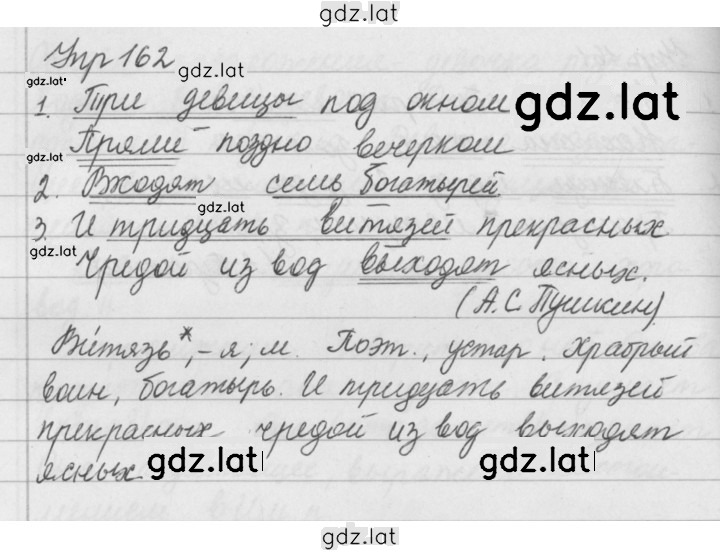 gdz.lat
Упр 162
gdz.lat
gdz.lat
1. Три девицы под окном
gdz.lat
Пряли поздно вечерком
gdz.lat
2. Входят семь богатырей
gdz.lat
3. И тридцать витязей прекрасных
gdz.lat
Чредой из вод выходят ясных.
(А.С. Пушкин).
Ви́тязь*, -я, м. Поэт., устар. Храбрый
воин, богатырь. И тридцать витязей
прекрасных чредой из вод выходят
ясных.
gdz.lat
gdz.lat
gdz.lat